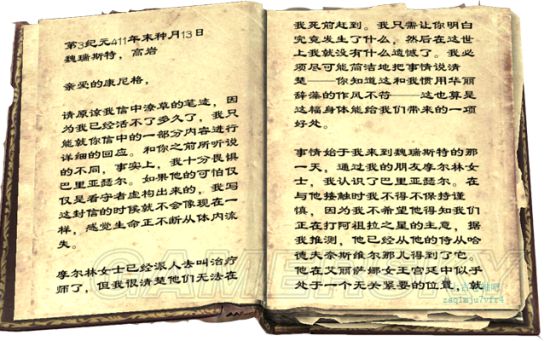 第3纪元411年末种月13日
魏瑞斯特，高岩
亲爱的康尼格，
请原谅我信中潦草的笔迹，因
为我已经活不了多久了，我只
能就你信中的一部分内容进行
详细的回应。和你之前所听说
的不同，事实上，我十分畏惧
巴里亚瑟尔。如果他的可怕仅
仅是看守者虚构出来的，我写
这封信的时候就不会像现在一
样，感觉生命正不断从体内流
失。
摩尔林女士已经派人去叫治疗
师了，但我很清楚他们无法在
我死前赶到。我只需让你明白
究竟发生了什么，然后在这世
上我就没有什么遗憾了。我必
须尽可能简洁地把事情说清
楚——你知道这和我惯用华丽
辞藻的作风不符——这也算是
这幅身体能给我们带来的一项
好处。
事情始于我来到魏瑞斯特的那
一天，通过我的朋友摩尔林女
士，我认识了巴里亚瑟尔。在
与他接触时我不得不保持谨
慎，因为我不希望他得知我们
正在打阿祖拉之星的主意，据
我推测，他已经从他的侍从哈
德夫奈斯维尔那儿得到了它，
他在艾丽萨娜女王宫廷中似乎
处于一个无关紧要的位置，就
GAMERSKY